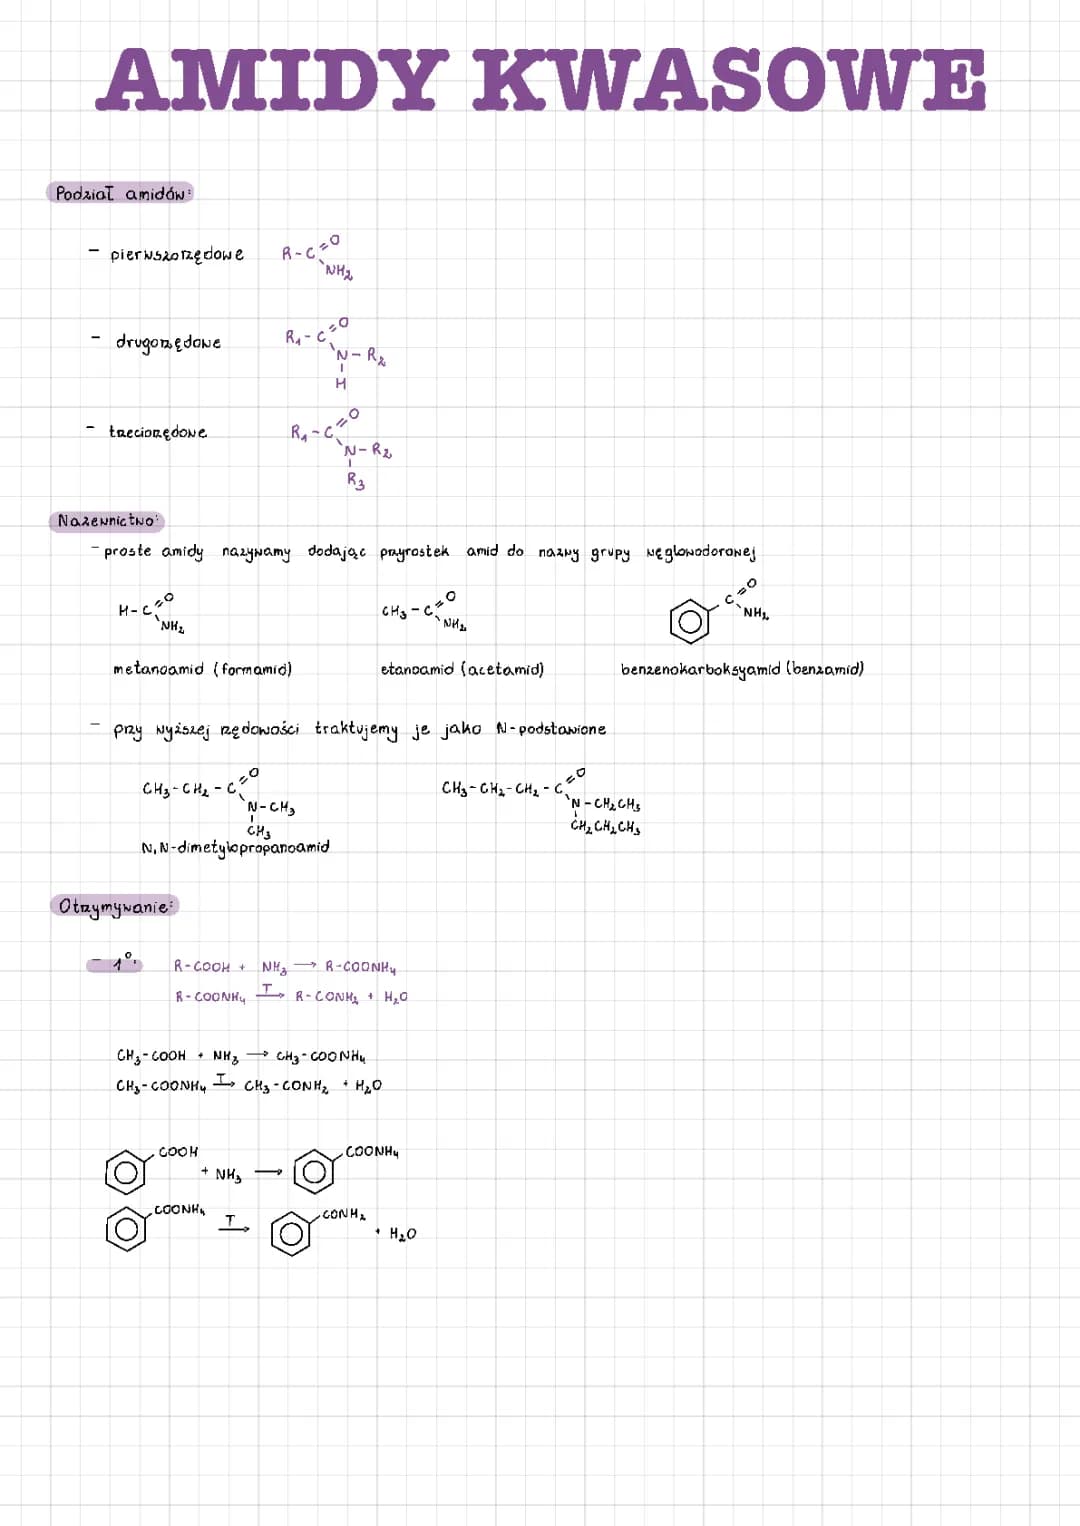 AMIDY KWASOWE
Podział amidów:
- pierwszorzędowe R-C=O
NH₂
- drugorzędowe R₁-C=O
N-R₂
H
- trzeciorzędowe R₁-C=O
N-R₂
R₃
Nazewnictwo:
- proste amidy nazywamy dodając przyrostek amid do nazwy grupy węglowodorowej
H-C=O CH₃-C=O C=O
NH₂ NH₂ NH₂
metanoamid (formamid) etanoamid (acetamid) benzenokarboksyamid (benzamid)
- przy wyższej rzędowości traktujemy je jako N-podstawione
CH₃-CH₂-C=O CH₃-CH₂-CH₂-C=O
N-CH₃ N-CH₂CH₃
CH₃ CH₂CH₂CH₃
N,N-dimetylopropanoamid
Otrzymywanie:
- 1°. R-COOH + NH₃ → R-COONH₄
R-COONH₄ T→ R-CONH₂ + H₂O
CH₃-COOH + NH₃ → CH₃-COONH₄
CH₃-COONH₄ T→ CH₃-CONH₂ + H₂O
COOH + NH₃ → COONH₄
COONH₄ T→ CONH₂ + H₂O